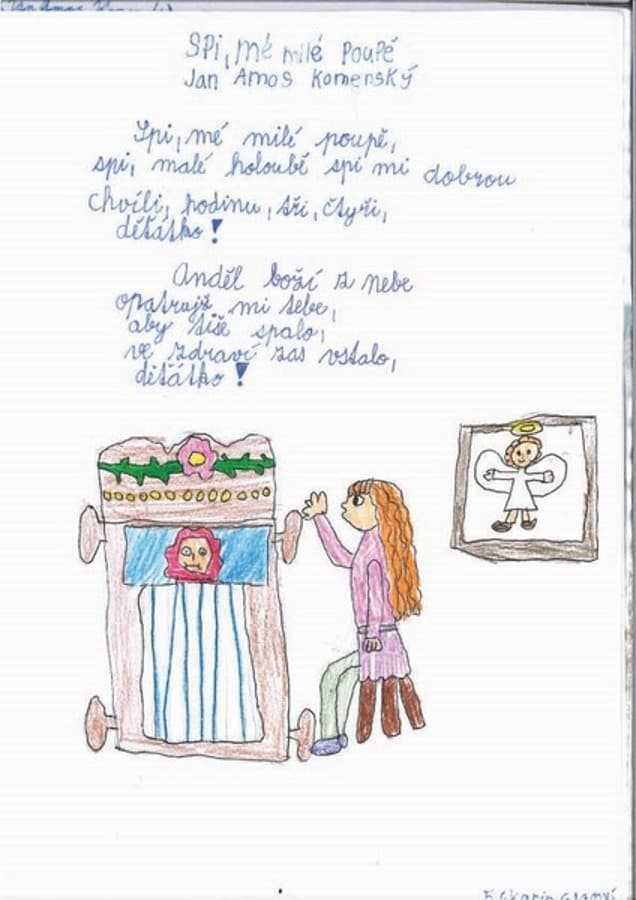 Spi, mé milé poupě
Jan Amos Komenský
Spi, mé milé poupě,
spi, malé holoubě spi mi dobrou
chvíli, hodinu, tři, čtyři,
děťátko!
Anděl boží z nebe
opatrujž mi tebe,
aby tiše spalo,
ve zdraví zas vstalo,
děťátko!